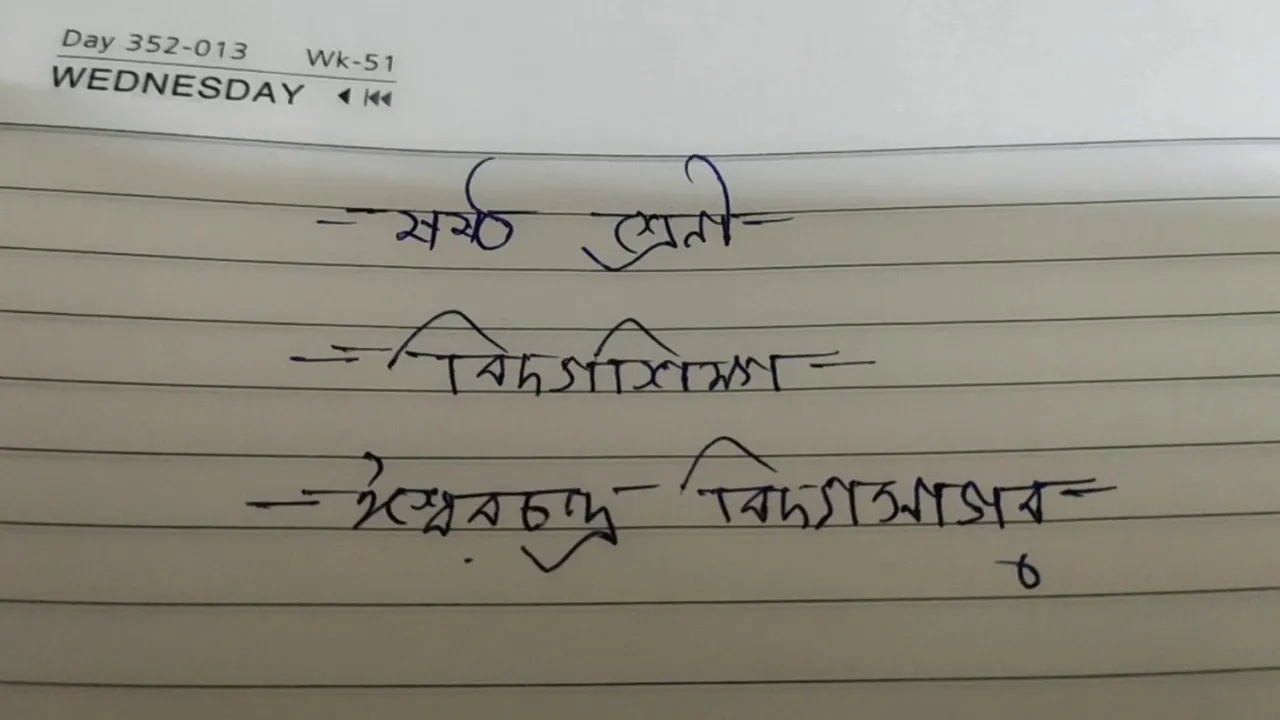 Day 352-013 Wk-51
WEDNESDAY
ষষ্ঠ শ্রেনী
বিদ্যাশিক্ষা
ঈশ্বরচন্দ্র বিদ্যাসাগর